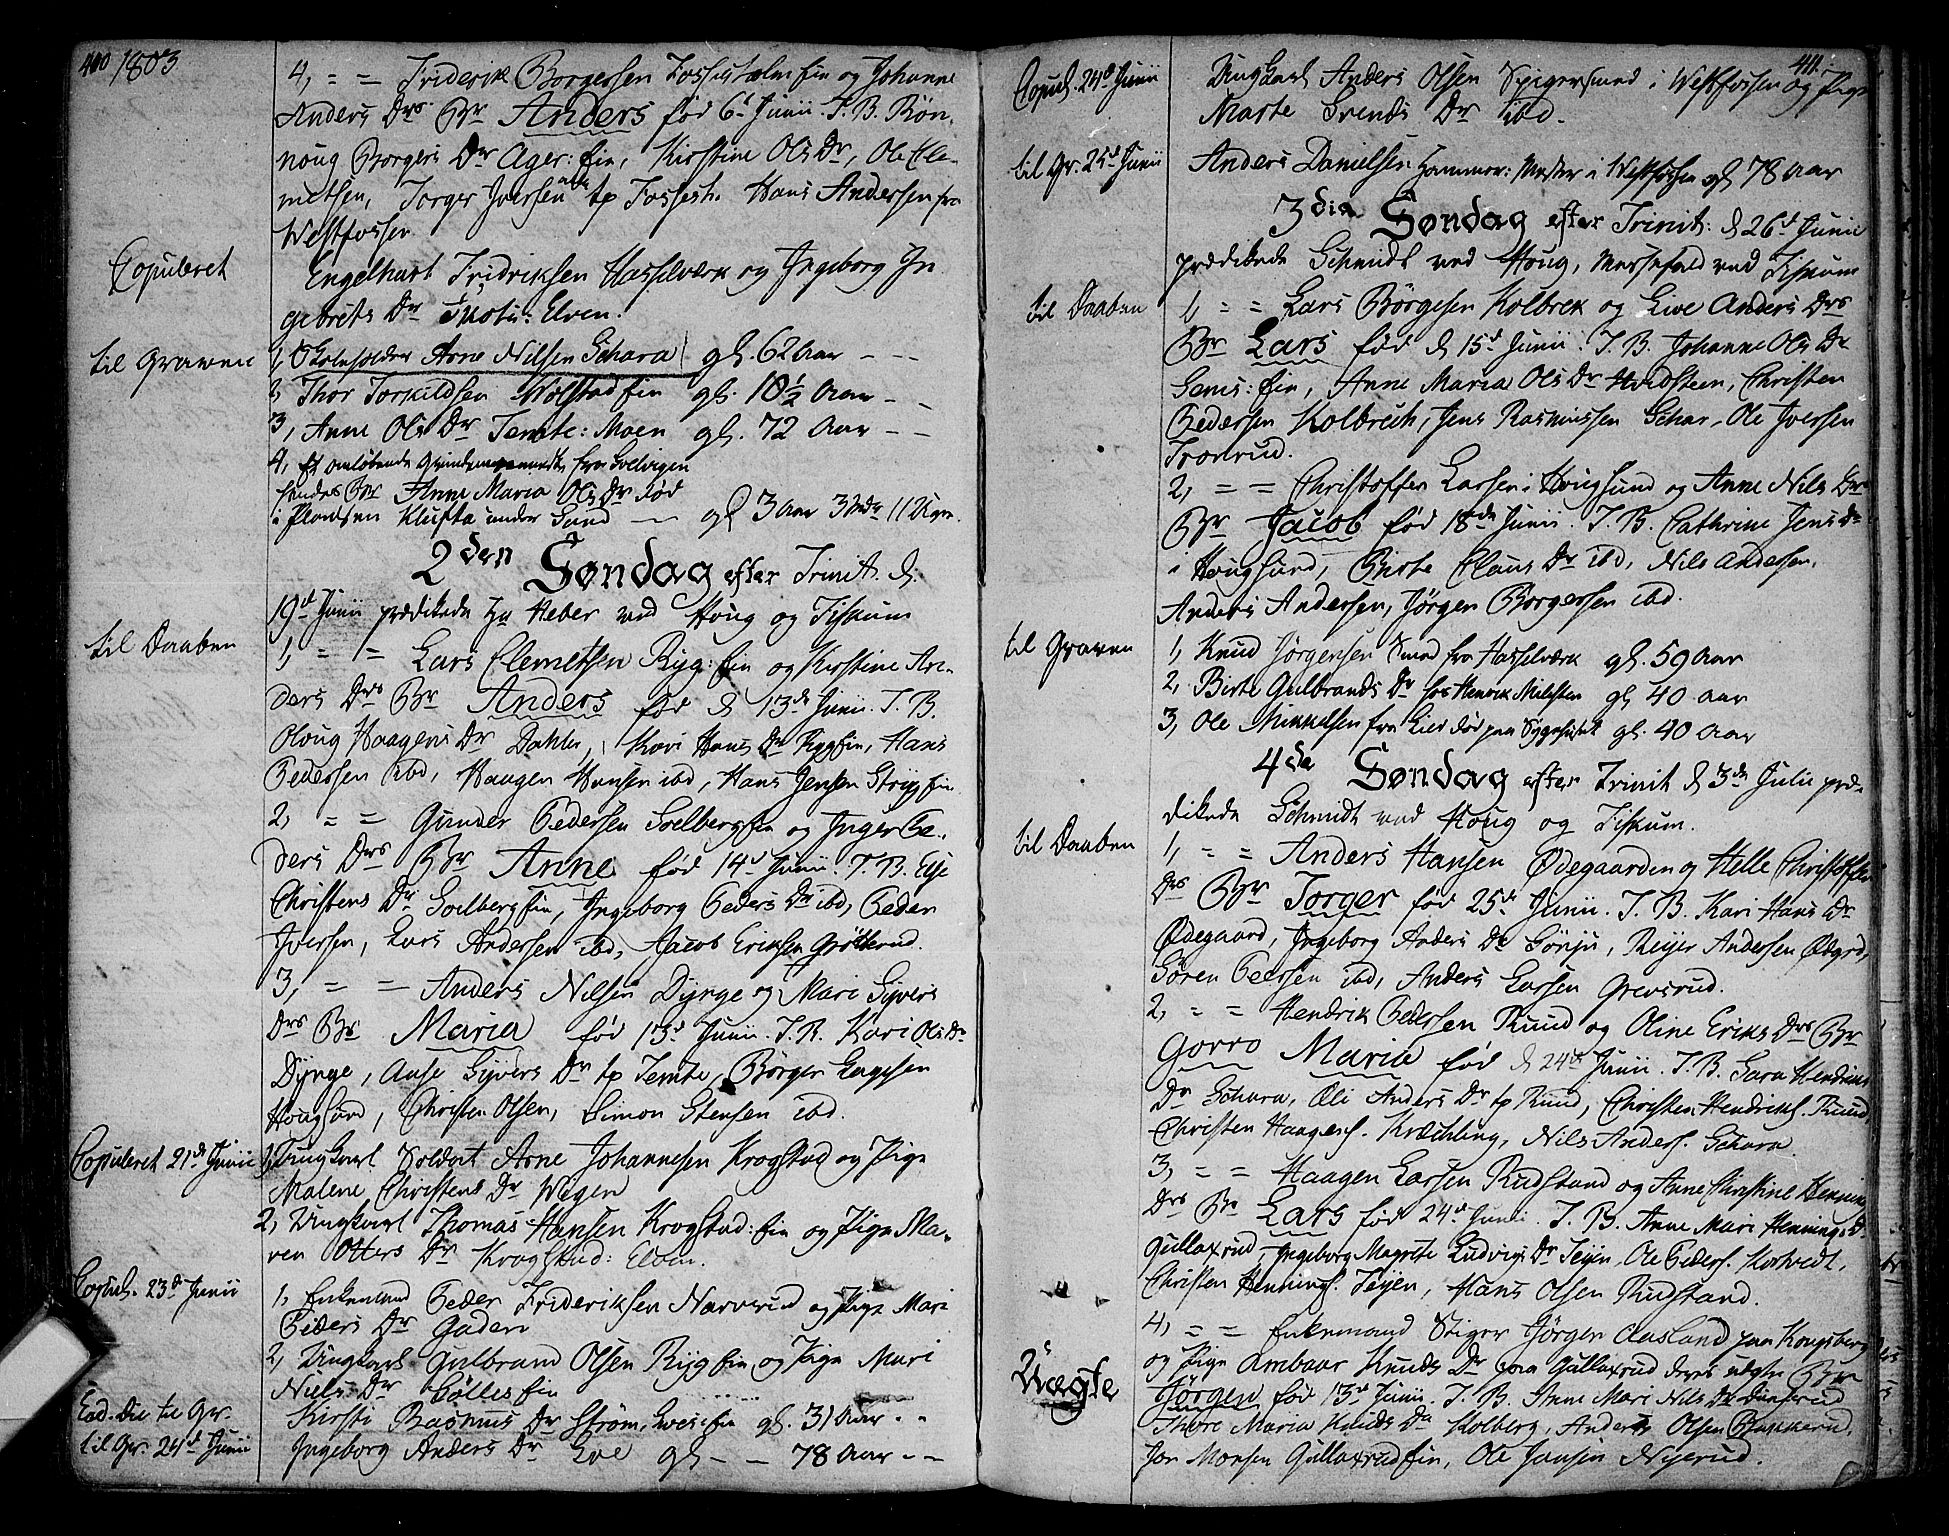 410 1803
4, = = Friderik Borgersen Fossesholm ein og Johanne
Anders Drs Br Anders fød 6t Junii. T. B. Røn-
noug Borgers Dr Ager: ein, Kirstine Ols Dr, Ole Cle-
metsen, Torger Iversen tp Fossesh. Hans Andersen fra
Westfossen
Copuleret
Engelhart Fridriksen Hasselværk og Ingeborg In-
gebrets Dr Skots: Elven.
til Graven
1, Skoleholder Arne Nilsen Schara gl. 62 Aar - -
2, Thor Torkildsen Wolstad ein gl. 18 1/2 Aar - -
3, Anne Ols Dr Temte: Moen gl. 72 Aar - -
4, Et omløbende fra Solvigen
hendes Br Anne Maria Ols Dr fød
i Pladsen Klufta under Sand - gl 3 Aar 11 Ugr.
2den Søndag efter Trinit. d.
19d Junii prædikede Hr Heber ved Houg og Fiskum
til Daaben
1, = = Lars Clemetsen Ryg: ein og Kirstine An-
ders Drs Br Anders fød d 13de Junii. T. B.
Oloug Haagens Dr Dahler, Kari Hans Dr Rygein, Hans
Pedersen ibd, Haagen Hansen ibd, Hans Jensen Strygein
2, = = Gunder Pedersen Solbergein og Inger Pe-
ders Drs Br Anne fød 14d Junii. T. B. Else
Christens Dr Solbergein, Ingeborg Peders Dr ibd, Peder
Iversen, Lars Andersen ibd, Jacob Eriksen Grøtterud.
3, = = Anders Nilsen Dynge og Mari Syvers
Drs Br Maria fød 13d Junii. T. B. Kari Ols Dr
Dynge, Aase Syvers Dr tp Temte, Børger Engesen
Hougsund, Christen Olsen, Simon Steensen ibd.
Copuleret 21de Junii
1, Ungkarl Soldat Arne Johannesen Krogstad og Pige
Malene Christens Dr Wegen
2, Ungkarl Thomas Hansen Krogstad: ein og Pige Ma-
ren Otters Dr Krogstad: Elven.
Copul. 23de Junii
1, Enkemand Peder Frideriksen Narverud og Pige Mari
Peders Dr Gaden
2, Ungkarl Gulbrand Olsen Rygein og Pige Mari
Niels Dr Bollesein
Eod. die til Gr.
Kirsti Rasmus Dr Strøm, Loeseein gl. 31 Aar - -
til Gr. 24d Junii
Ingeborg Anders Dr Loe gl - - 78 Aar - -
411.
Copul. 24d Junii
Ungkarl Anders Olsen Spigersmed i Westfossen og Pige
Marte Svends Dr ibd.
til Gr. 25d Junii
Anders Danielsen Hammer: Mester i Westfossen gl 78 Aar
3die Søndag efter Trinit: d 26d Junii
prædikede Schmidt ved Houg, Messefald ved Fiskum
til Daaben
1, = = Lars Børgesen Kolbrek og Live Anders Drs
Br Lars fød d 15d Junii. T. B. Johanne Ols Dr
Sems: ein, Anne Maria Ols Dr Hvidsteen, Christen
Pedersen Kolbrech, Jens Rasmussen Schar, Ole Iversen
Tronrud.
2, = = Christoffer Larsen i Hougsund og Anne Nils Drs
Br Jacob fød 18de Junii. T. B. Cathrine Jens Dr
i Hougsund, Birte Claus Dr ibd, Nils Andersen,
Anders Andersen, Jørgen Borgersen ibd.
til Graven
1, Knud Jørgensen Smed fra Hasselværk gl. 59 Aar
2, Birte Gulbrands Dr hos Henrik Milesten gl 40 Aar
3, Ole Mikkelsen fra Lier død paa Sygehuset gl. 40 Aar
4de Søndag efter Trinit d 3de Julii præ-
dikede Schmidt ved Houg og Fiskum.
til Daaben
1, = = Anders Hansen Ødegaarden og Helle Christoffers
Drs Br Torger fød 25de Junii. T. B. Kari Hans Dr
Ødegaard, Ingeborg Anders Dr Sønju, Reyer Andersen Ødgrd,
Søren Peersen ibd, Anders Larsen Grevsrud.
2, = = Hendrik Pedersen Ruud og Oline Eriks Drs Br
Gorro Maria fød d 24de Junii. T. B. Sara Hendriks
Dr Schara, Eli Anders Dr tp Ruud, Christen Hendriks. Ruud,
Christen Haagens. Krækling, Nils Anders. Schara.
3, = = Haagen Larsen Rudstand og Anne Kirstine Henning
Drs Br Lars fød 24d Junii. T. B. Anne Mari Hennings D.
Gullaxrud, Ingeborg Magrete Ludvigs Dr Teyen, Ole Peders. Kortvedt,
Christen Hennings. Teyen, Hans Olsen Rudstand.
Uægte
4, = = Enkemand Stiger Jørgen Aasland paa Kongsberg
og Pige Ambaar Knuds Dr paa Gullaxrud deres uægte Br
Jørgen fød 13d Junii. T. B. Anne Mari Nils Dr Dunserud
Thore Maria Knuds Dr Kolberg, Anders Olsen Bakkerud,
Jon Monsen Gullaxrudein, Ole Jansen Myerud.